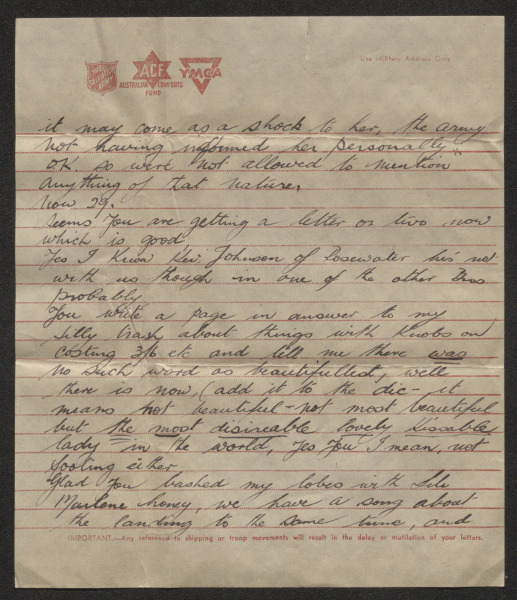 THE SALVATION ARMY
ACF
AUSTRALIAN COMFORTS
FUND
YMCA
Use Military Address Only
it may come as a shock to her, the army
not having informed her personally
OK. so were not allowed to mention
anything of that nature.
Nov 29.
Seems you are getting a letter or two now
which is good
Yes I know Kev Johnson of Rosewater he's not
with us though in one of the other
probably
You write a page in answer to my
silly trash about things with knobs on
costing 3/6 etc and tell me there was
no such word as beautifullest, well
there is now, (add it to the dic - it
means not beautiful - not most beautiful
but the most disireable lovely kissable
lady - in the world, yes you I mean, not
fooling either
Glad you bashed my lobes with Lili
Marlene honey, we have a song about
the landing to the same tune, and
IMPORTANT.—Any reference to shipping or troop movements will result in the delay or mutilation of your letters.